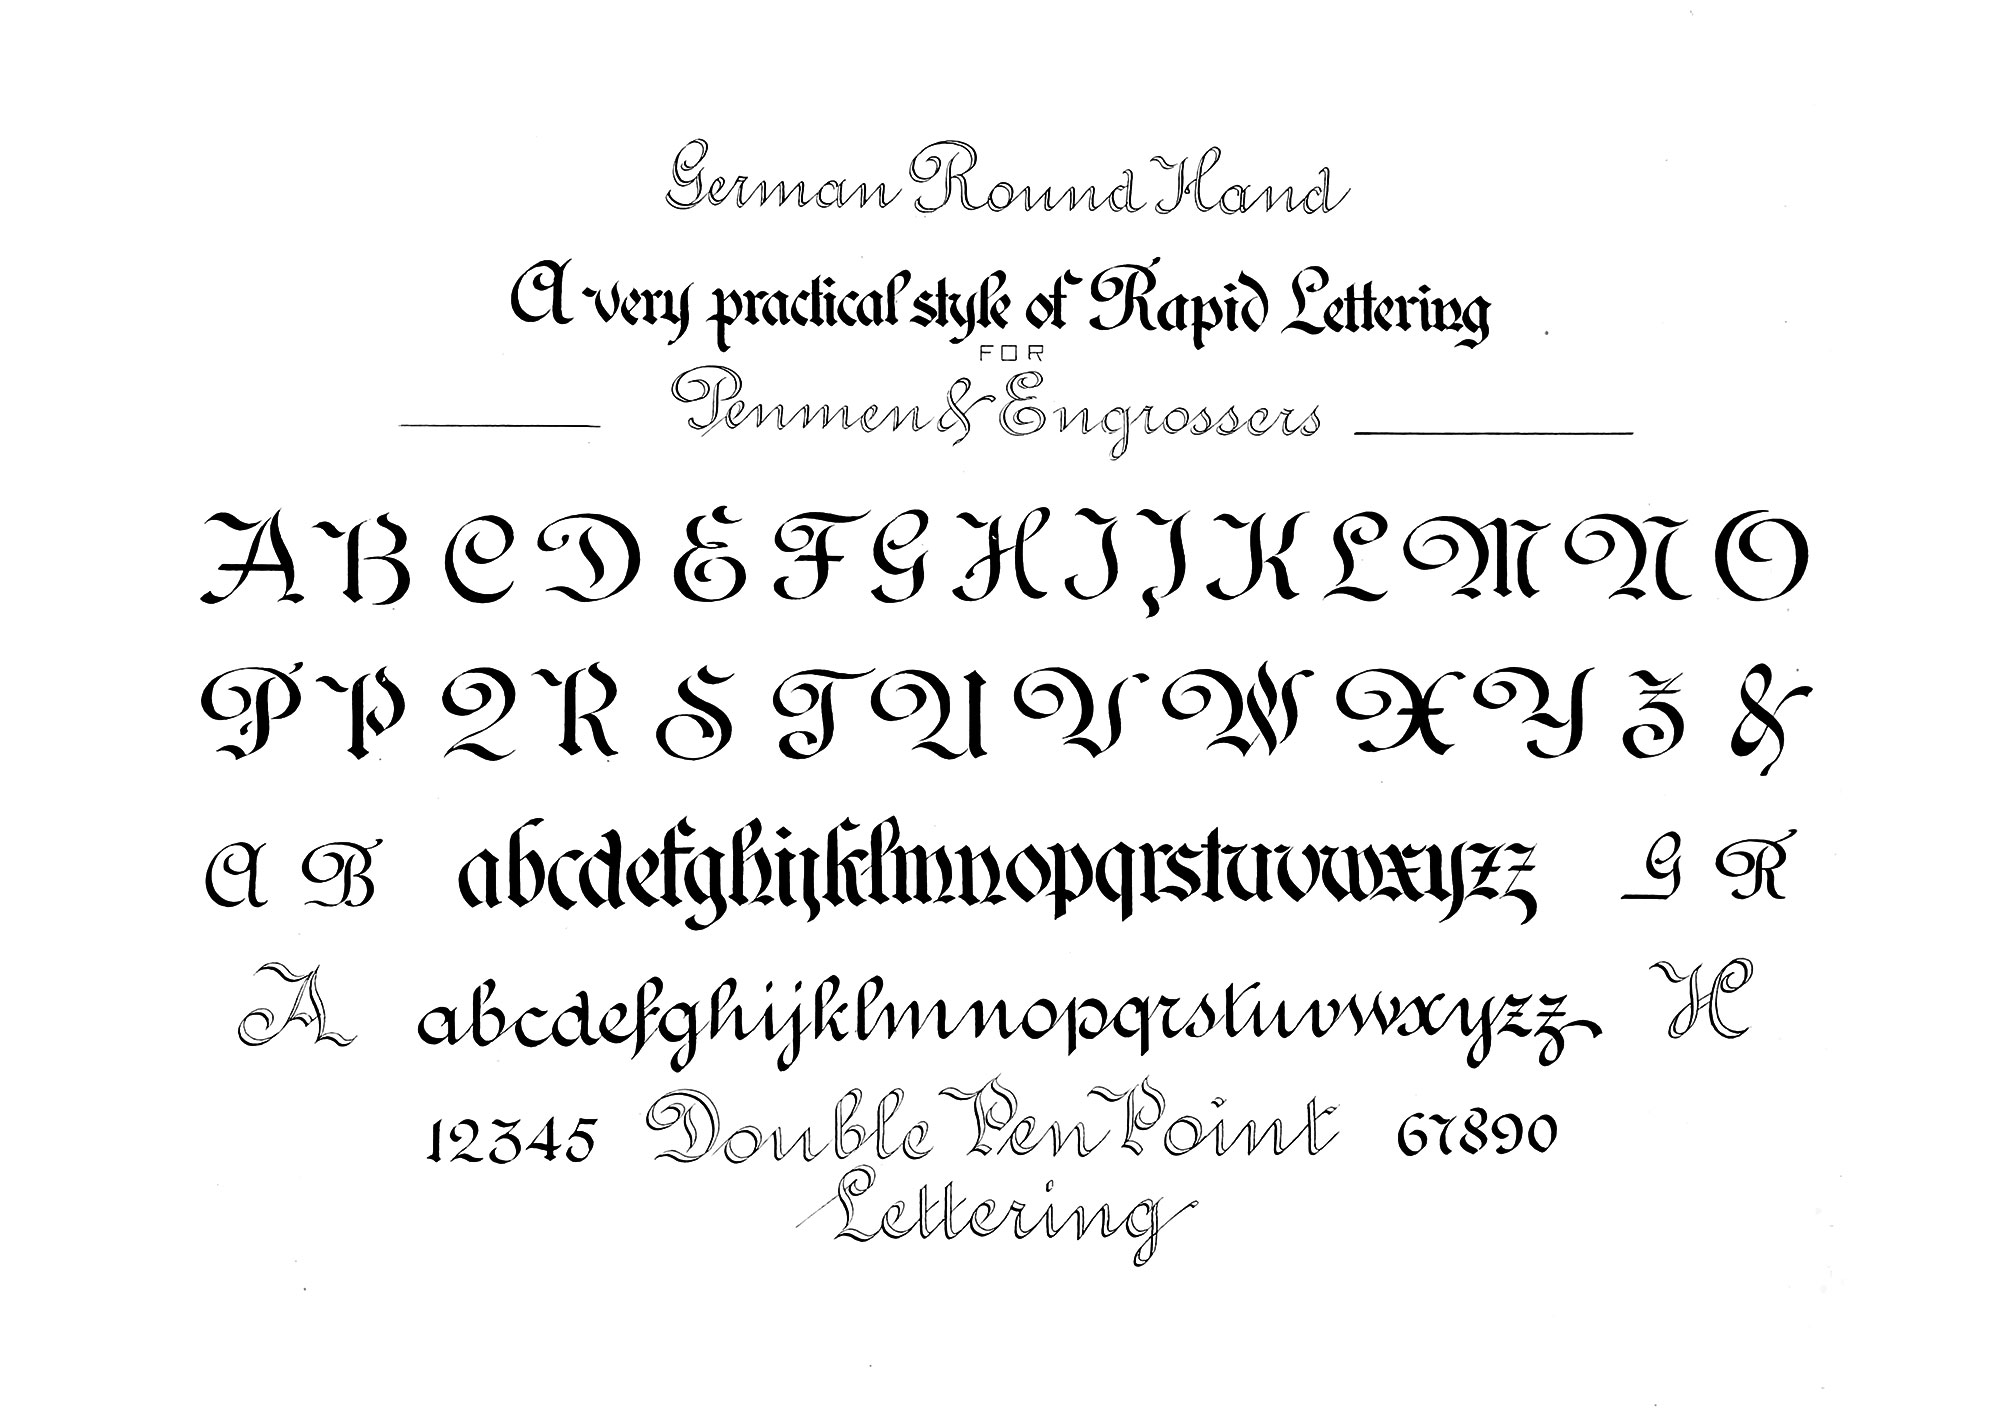 German Round Hand
A very practical style of Rapid Lettering
FOR
Penmen & Engrossers
A B C D E F G H I J K L M N O
P P Q R S T U V W X Y Z &
A B abcdefghijklmnopqrstuvwxyzz G R
A abcdefghijklmnopqrstuvwxyzz H
12345 Double Pen Point 67890
Lettering